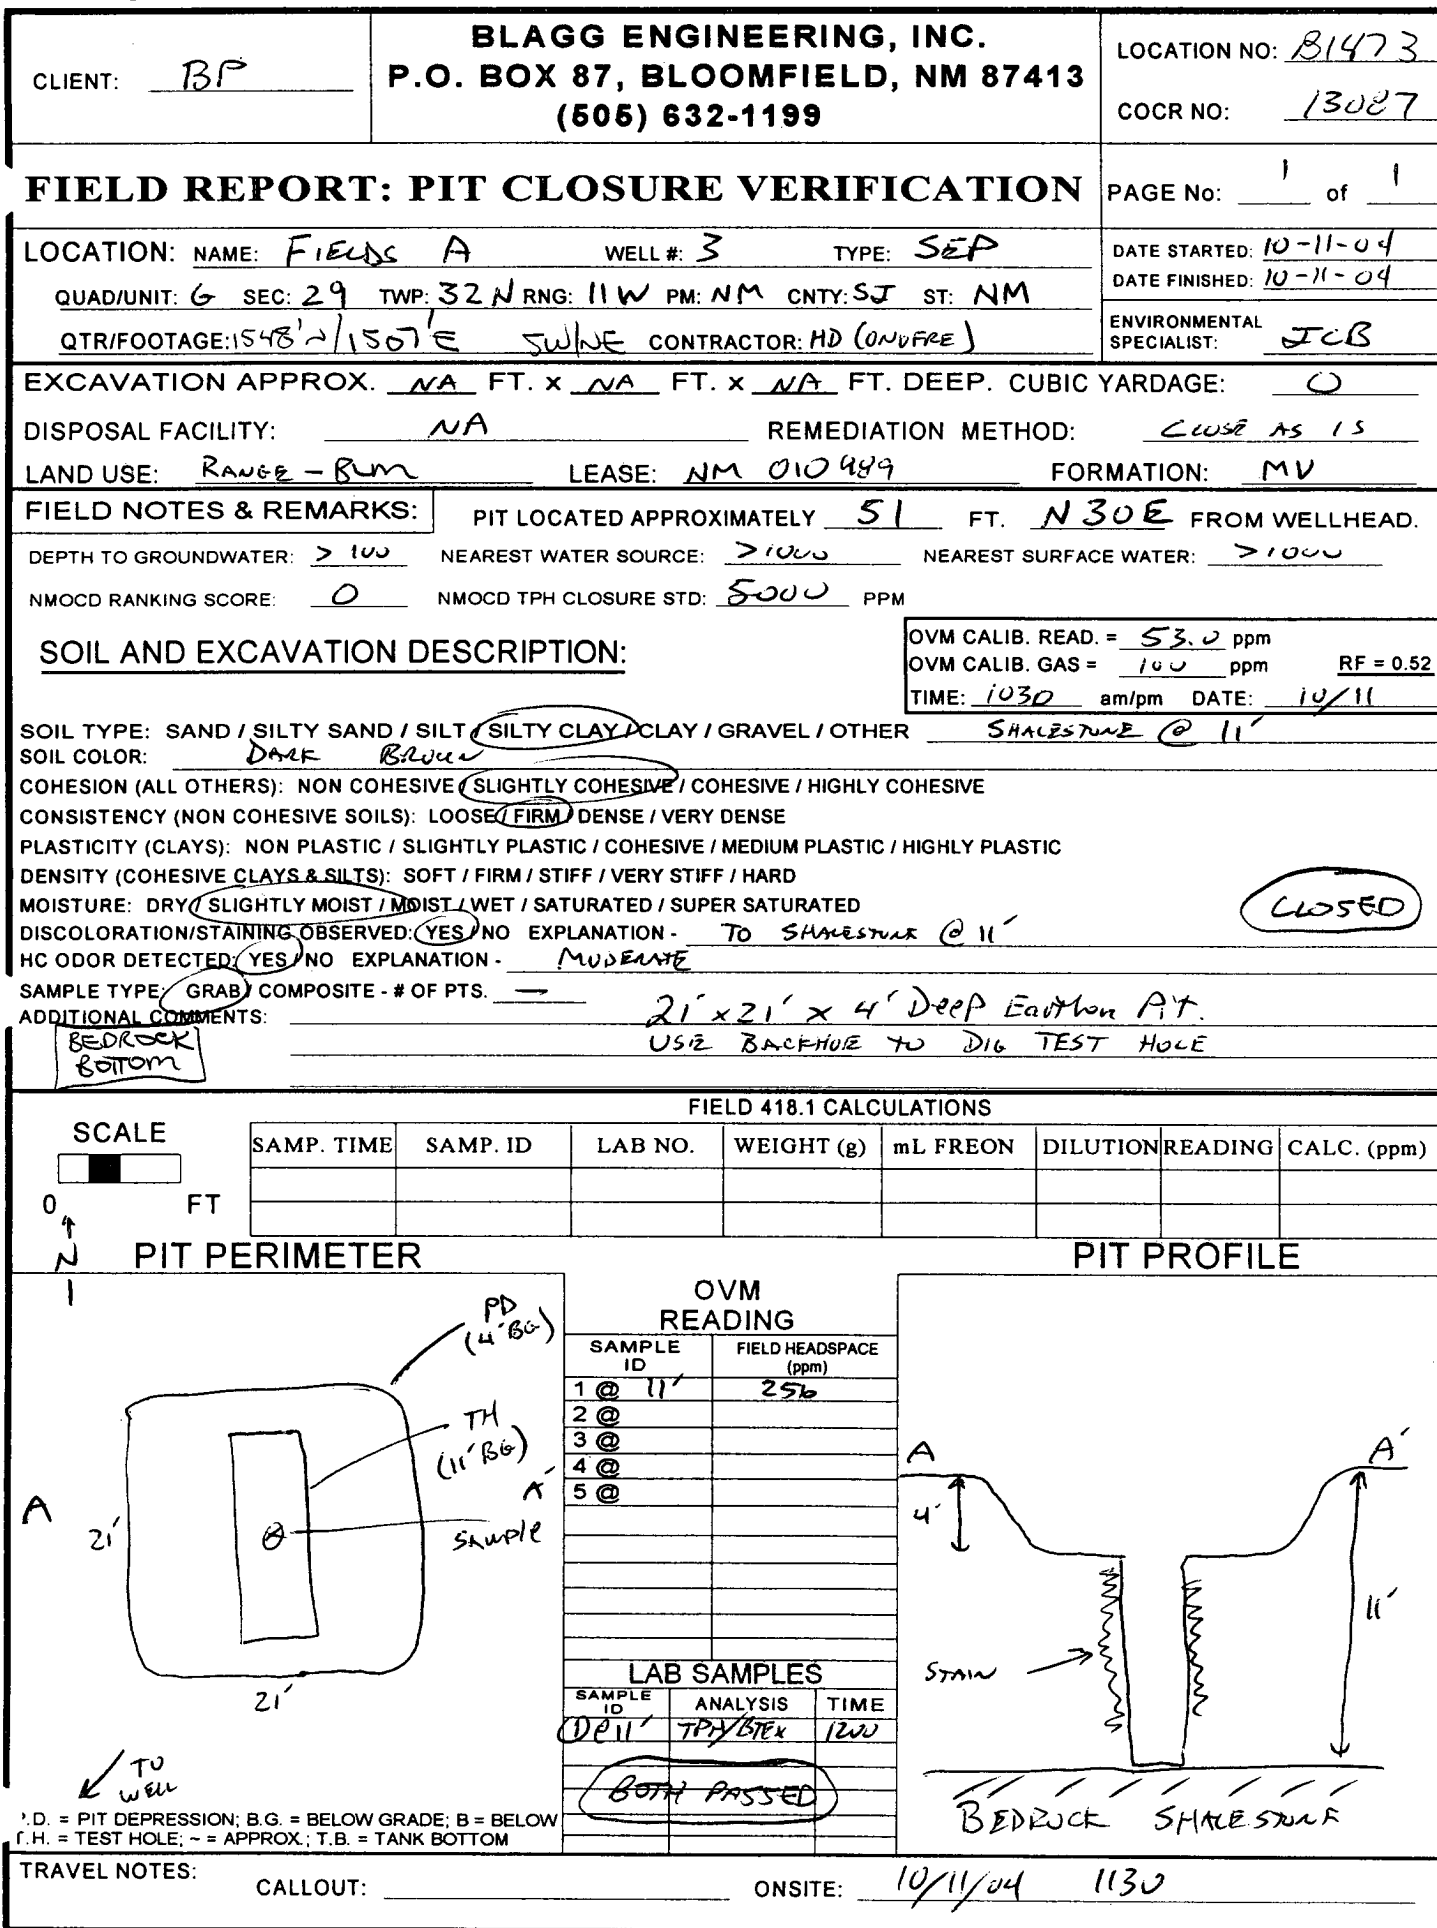 CLIENT: BP
BLAGG ENGINEERING, INC.
P.O. BOX 87, BLOOMFIELD, NM 87413
(505) 632-1199
LOCATION NO: B1473
COCR NO: 13087
FIELD REPORT: PIT CLOSURE VERIFICATION
PAGE No: 1 of 1
LOCATION: NAME: FIELDS A WELL #: 3 TYPE: SEP
QUAD/UNIT: G SEC: 29 TWP: 32N RNG: 11W PM: NM CNTY: SJ ST: NM
QTR/FOOTAGE: 1548'N/1507'E SW/NE CONTRACTOR: HD (ONOFRE)
DATE STARTED: 10-11-04
DATE FINISHED: 10-11-04
ENVIRONMENTAL
SPECIALIST: JCB
EXCAVATION APPROX. NA FT. x NA FT. x NA FT. DEEP. CUBIC YARDAGE: 0
DISPOSAL FACILITY: NA REMEDIATION METHOD: CLOSE AS IS
LAND USE: RANGE - BLM LEASE: NM 010989 FORMATION: MV
FIELD NOTES & REMARKS: PIT LOCATED APPROXIMATELY 51 FT. N30E FROM WELLHEAD.
DEPTH TO GROUNDWATER: >100 NEAREST WATER SOURCE: >1000 NEAREST SURFACE WATER: >1000
NMOCD RANKING SCORE: 0 NMOCD TPH CLOSURE STD: 5000 PPM
SOIL AND EXCAVATION DESCRIPTION:
OVM CALIB. READ. = 53.0 ppm
OVM CALIB. GAS = 100 ppm RF = 0.52
TIME: 1030 am/pm DATE: 10/11
SOIL TYPE: SAND / SILTY SAND / SILT / SILTY CLAY / CLAY / GRAVEL / OTHER SHALESTONE @ 11'
SOIL COLOR: DARK BROWN
COHESION (ALL OTHERS): NON COHESIVE / SLIGHTLY COHESIVE / COHESIVE / HIGHLY COHESIVE
CONSISTENCY (NON COHESIVE SOILS): LOOSE / FIRM / DENSE / VERY DENSE
PLASTICITY (CLAYS): NON PLASTIC / SLIGHTLY PLASTIC / COHESIVE / MEDIUM PLASTIC / HIGHLY PLASTIC
DENSITY (COHESIVE CLAYS & SILTS): SOFT / FIRM / STIFF / VERY STIFF / HARD
MOISTURE: DRY / SLIGHTLY MOIST / MOIST / WET / SATURATED / SUPER SATURATED
CLOSED
DISCOLORATION/STAINING OBSERVED: YES / NO EXPLANATION - TO SHALESTONE @ 11'
HC ODOR DETECTED: YES / NO EXPLANATION - MODERATE
SAMPLE TYPE: GRAB / COMPOSITE - # OF PTS. —
ADDITIONAL COMMENTS: 21' x 21' x 4' Deep Earthen Pit.
USE BACKHOE TO DIG TEST HOLE
BEDROCK
BOTTOM
FIELD 418.1 CALCULATIONS
SCALE
0 FT
SAMP. TIME SAMP. ID LAB NO. WEIGHT (g) mL FREON DILUTION READING CALC. (ppm)
N
PIT PERIMETER
PD
(4'BG)
TH
(11'BG)
A
A'
21'
SAMPLE
21'
TO
WELL
P.D. = PIT DEPRESSION; B.G. = BELOW GRADE; B = BELOW
T.H. = TEST HOLE; ~ = APPROX.; T.B. = TANK BOTTOM
OVM
READING
SAMPLE ID FIELD HEADSPACE (ppm)
1 @ 11' 256
2 @
3 @
4 @
5 @
LAB SAMPLES
SAMPLE ID ANALYSIS TIME
①@11' TPH/BTEX 1200
BOTH PASSED
PIT PROFILE
A A'
4'
11'
STAIN
BEDROCK SHALESTONE
TRAVEL NOTES: CALLOUT: ONSITE: 10/11/04 1130